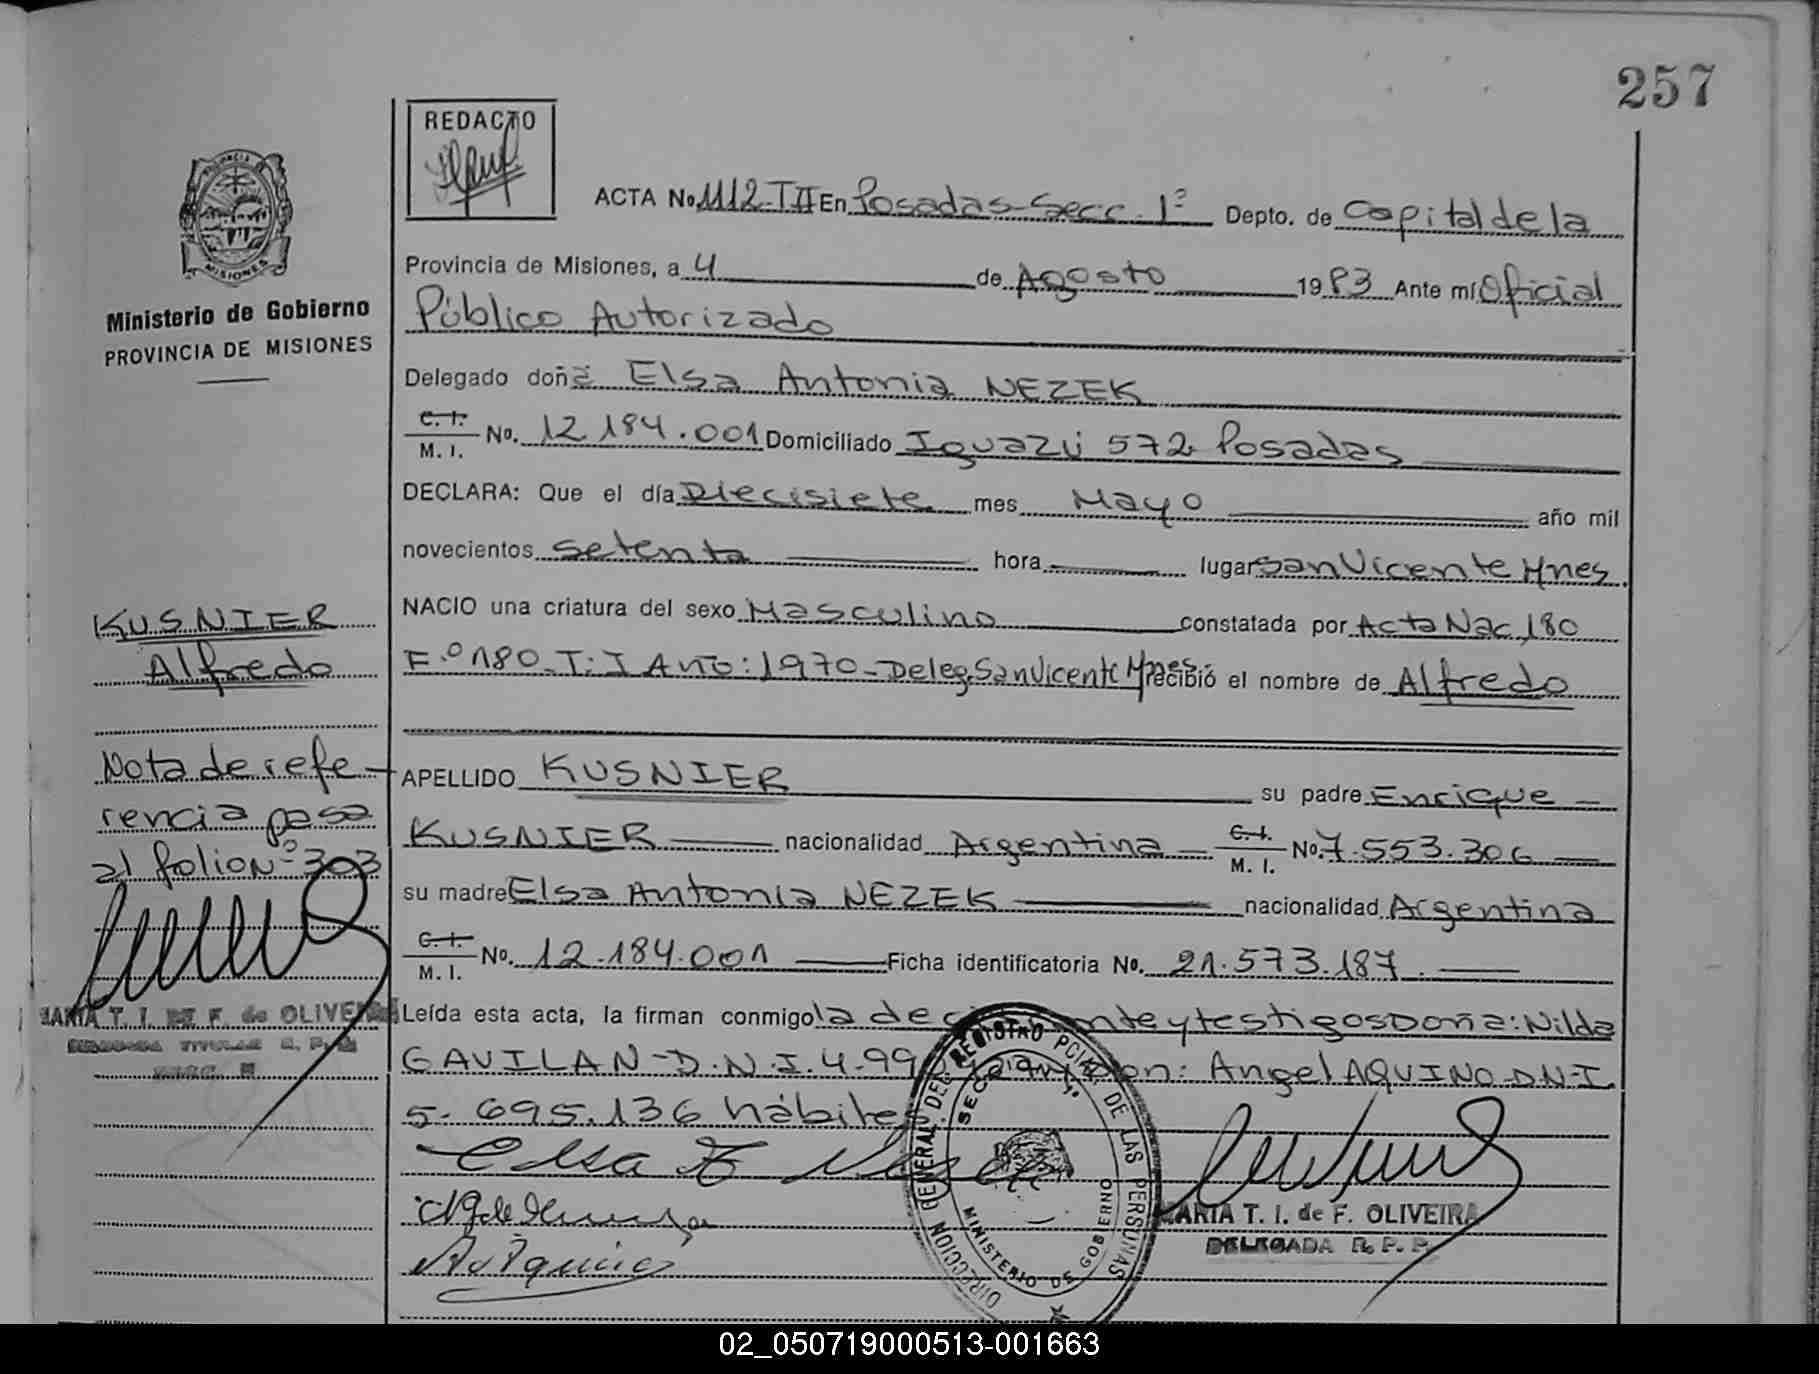 257
REDACTO
PROVINCIA DE
MISIONES
Ministerio de Gobierno
PROVINCIA DE MISIONES
ACTA No. 1112-TII En Posadas-Secc. 1ª Depto. de Capital de la
Provincia de Misiones, a 4 de Agosto 1983 Ante mí Oficial
Público Autorizado
Delegado doña Elsa Antonia NEZEK
C. I.
M. I. No. 12.184.001 Domiciliado Iguazú 572 Posadas
DECLARA: Que el día Diecisiete mes Mayo año mil
novecientos setenta hora lugar San Vicente Mnes
NACIO una criatura del sexo Masculino constatada por Acta Nac. 180
F.º 180-T: I Año: 1970-Deleg. San Vicente Mnes. recibió el nombre de Alfredo
APELLIDO KUSNIER su padre Enrique
KUSNIER nacionalidad Argentina C. I.
M. I. No. 7.553.306
su madre Elsa Antonia NEZEK nacionalidad Argentina
C. I.
M. I. No. 12.184.001 Ficha identificatoria No. 21.573.187.
Leída esta acta, la firman conmigo la de nte y testigos Doña: Nilda
GAVILAN-D.N.I. 4.99 Don: Angel AQUINO-D.N.I
5.695.136 hábiles
KUSNIER
Alfredo
Nota de refe-
rencia pasa
al folio Nº 303
MARIA T. I. DE F. de OLIVEIRA
DELEGADA TITULAR R. P. P.
SECC.
DIRECCION GENERAL DEL REGISTRO PCIAL. DE LAS PERSONAS
SECC.
MINISTERIO DE GOBIERNO
MARIA T. I. de F. OLIVEIRA
DELEGADA R. P. P.
02_050719000513-001663